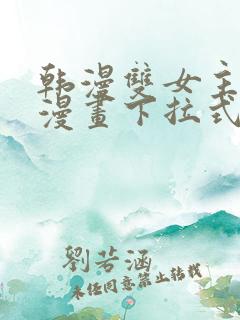 韩漫雙女主
漫畫下拉式
劉若涵
未经同意禁止转载